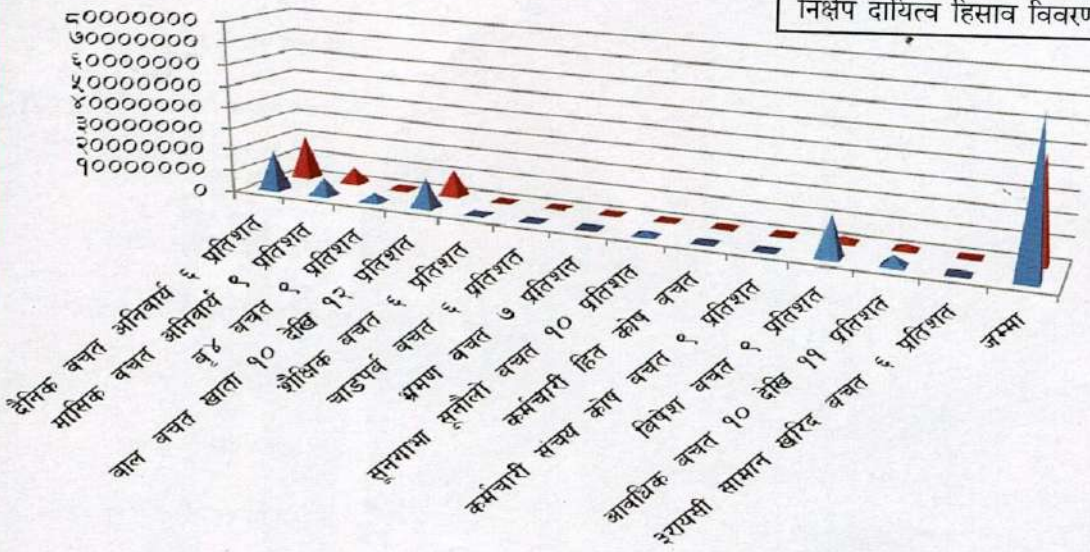 निक्षेप दायित्व हिसाव विवरण
८०००००००
७०००००००
६०००००००
५०००००००
४०००००००
३०००००००
२०००००००
१०००००००
०
दैनिक वचत अनिवार्य ६ प्रतिशत
मासिक वचत अनिवार्य ९ प्रतिशत
वृद्ध वचत ९ प्रतिशत
वाल वचत खाता १० देखि १२ प्रतिशत
शैक्षिक वचत ६ प्रतिशत
चाडपर्व वचत ६ प्रतिशत
भ्रमण वचत ७ प्रतिशत
सूनगाभा सूनौलो वचत १० प्रतिशत
कर्मचारी हित कोष वचत
कर्मचारी संचय कोष वचत ९ प्रतिशत
विषेश वचत ९ प्रतिशत
आवधिक वचत १० देखि ११ प्रतिशत
सामान खरिद वचत ६ प्रतिशत
जम्मा